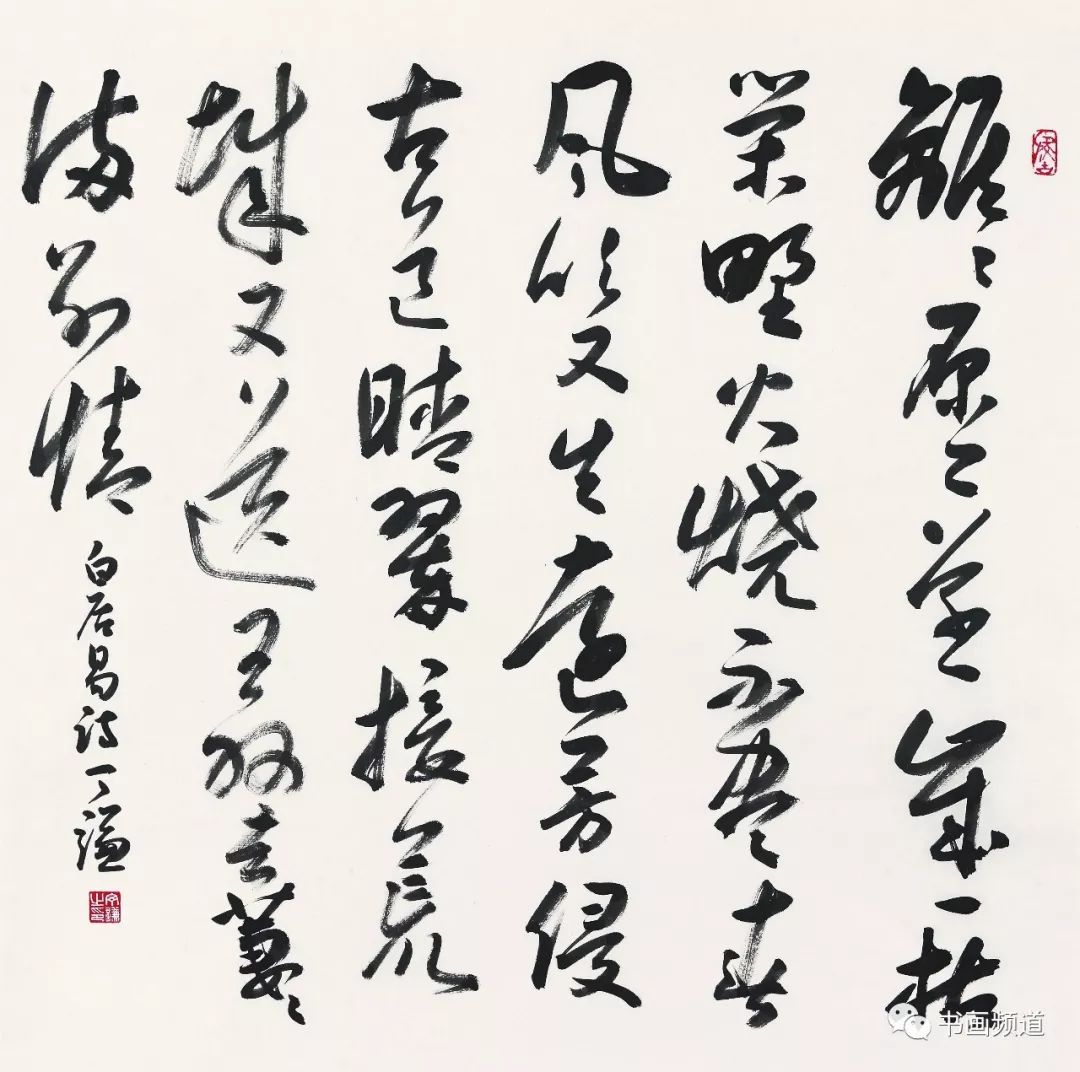 離離原上草一歲一枯
榮野火燒不盡春
風吹又生遠芳侵
古道晴翠接荒
城又送王孫去萋萋
滿別情
白居易詩丁謙
书画频道